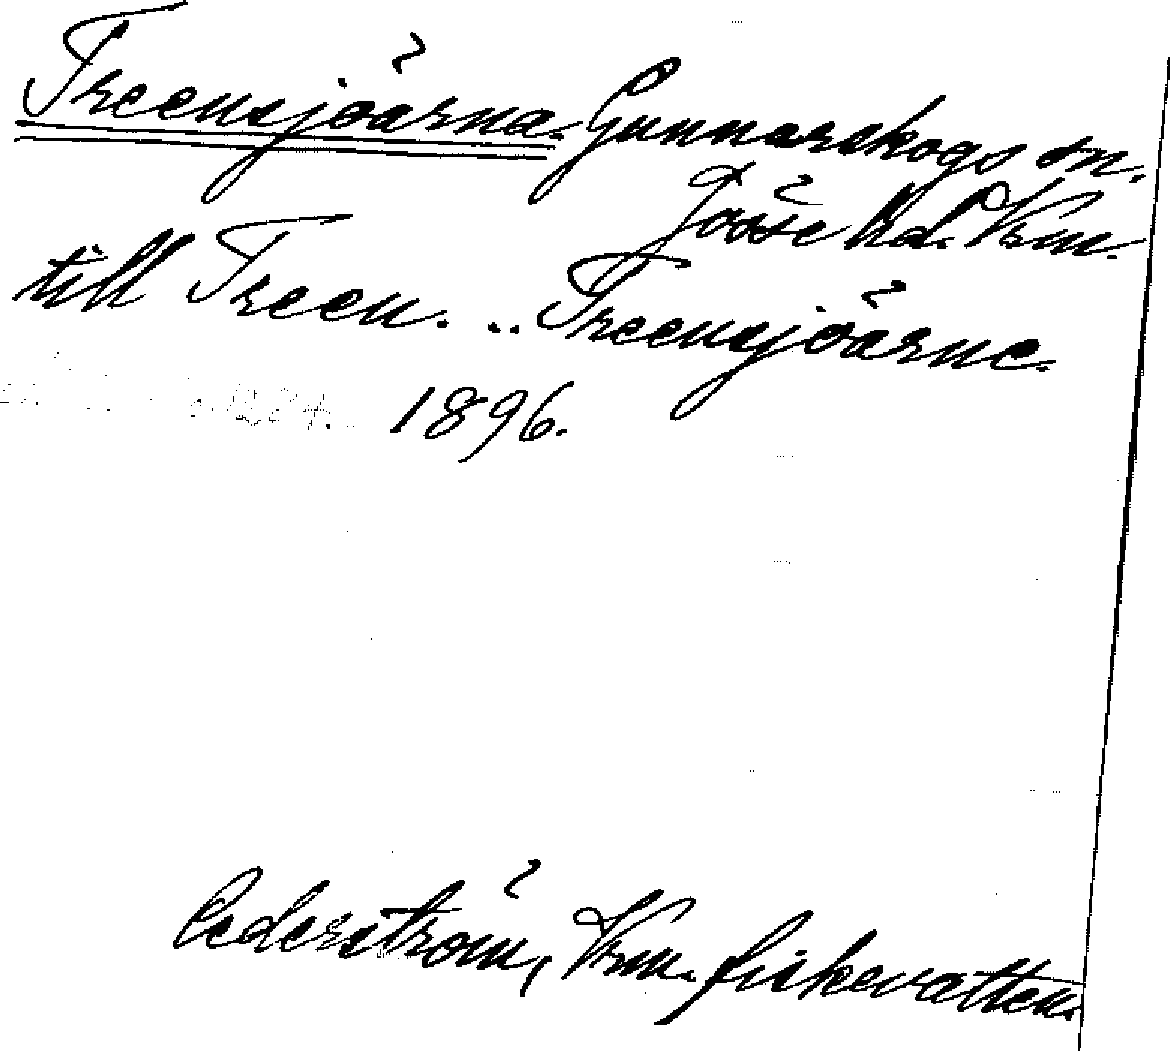 Treensjöarna. Gunnarskogs sn.
Jösse hd. Vrm.
till Treen. .. Treensjöarne.
1896.
Cederström, Vrm. fiskevatten.